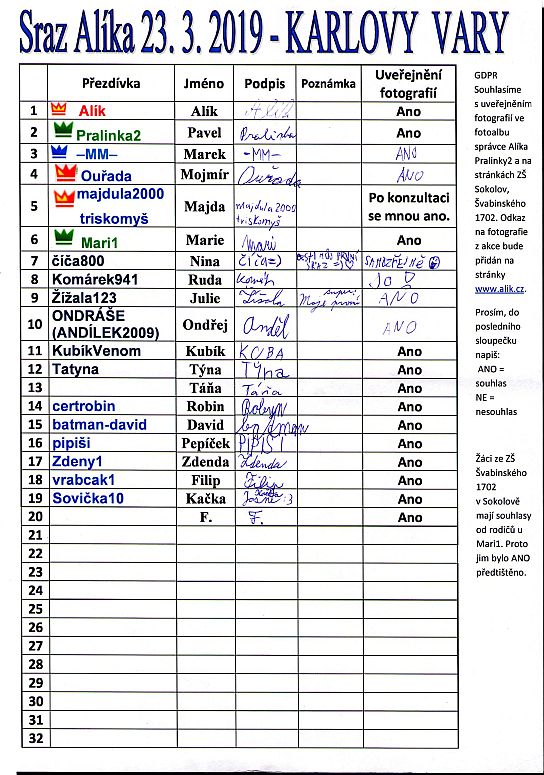 Sraz Alíka 23. 3. 2019 - KARLOVY VARY
Přezdívka Jméno Podpis Poznámka Uveřejnění fotografií
1 Alík Alík Alík Ano
2 Pralinka2 Pavel Pralinka Ano
3 –MM– Marek -MM- ANO
4 Ouřada Mojmír Ouřada ANO
5 majdula2000 triskomyš Majda majdula2000 triskomyš Po konzultaci se mnou ano.
6 Mari1 Marie Mari Ano
7 číča800 Nina číča=)
8 Komárek941 Ruda JO
9 Žížala123 Julie Žížala super! Moje první ANO
10 ONDRÁŠE (ANDÍLEK2009) Ondřej Anděl ANO
11 KubíkVenom Kubík KUBA Ano
12 Tatyna Týna Týna Ano
13 Táňa Táňa Ano
14 certrobin Robin Ano
15 batman-david David batman Ano
16 pipiši Pepíček PIPIŠI Ano
17 Zdeny1 Zdenda Zdenda Ano
18 vrabcak1 Filip Filip Ano
19 Sovička10 Kačka Ano
20 F. F. Ano
21
22
23
24
25
26
27
28
29
30
31
32
GDPR
Souhlasime
s uveřejněním
fotografií ve
fotoalbu
správce Alíka
Pralinky2 a na
stránkách ZŠ
Sokolov,
Švabinského
1702. Odkaz
na fotografie
z akce bude
přidán na
stránky
www.alik.cz.
Prosím, do
posledního
sloupečku
napiš:
ANO =
souhlas
NE =
nesouhlas
Žáci ze ZŠ
Švabinského
1702
v Sokolově
mají souhlasy
od rodičů u
Mari1. Proto
jim bylo ANO
předtištěno.